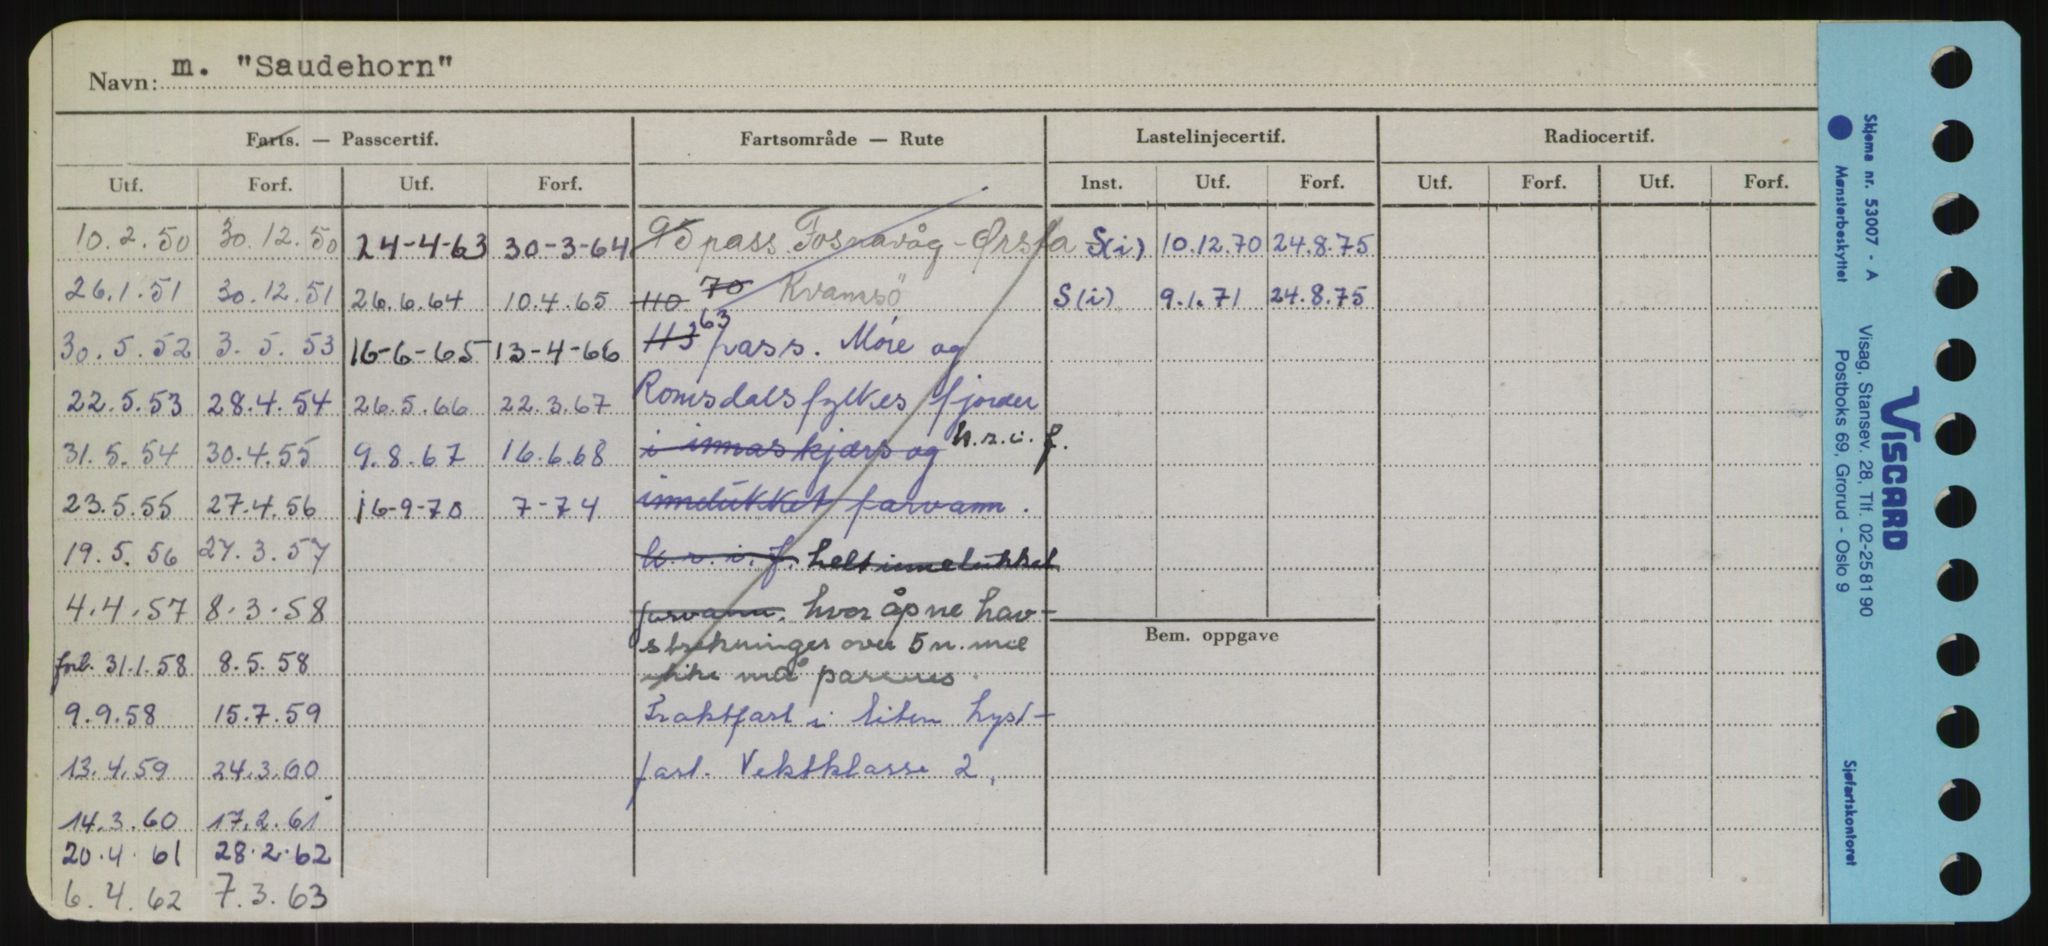 Navn: m. "Saudehorn"
Farts. — Passcertif. Fartsområde — Rute Lastelinjecertif. Radiocertif.
Utf. Forf. Utf. Forf. Inst. Utf. Forf. Utf. Forf. Utf. Forf.
10.2.50 30.12.50 24-4-63 30-3-64 95 pass. Fosnavåg - Ørsta S(i) 10.12.70 24.8.75
26.1.51 30.12.51 26.6.64 10.4.65 110 70 Kvamsö S(i) 9.1.71 24.8.75
30.5.52 3.5.53 16-6-65 13-4-66 113 63 pass. Møre og
22.5.53 28.4.54 26.5.66 22.3.67 Romsdals fylkes fjorder
31.5.54 30.4.55 9.8.67 16.6.68 i innaskjærs og h.r.i.f.
23.5.55 27.4.56 16-9-70 7-74 innelukket farvann.
19.5.56 27.3.57 h.r.i.f. helt innelukket
4.4.57 8.3.58 farvann. hvor åpne hav-
forl. 31.1.58 8.5.58 strekninger over 5 n. mil
ikke må pareres.
9.9.58 15.7.59 Fraktfart i liten kyst-
13.4.59 24.3.60 fart. Vektklasse 2.
14.3.60 17.2.61
20.4.61 28.2.62
6.4.62 7.3.63
Bem. oppgave
Skjema nr. 53007 - A
Mønsterbeskyttet
VISCARD
Visag, Stansev. 28, Tlf. 02-25 81 90
Postboks 69, Grorud - Oslo 9
Sjøfartskontoret